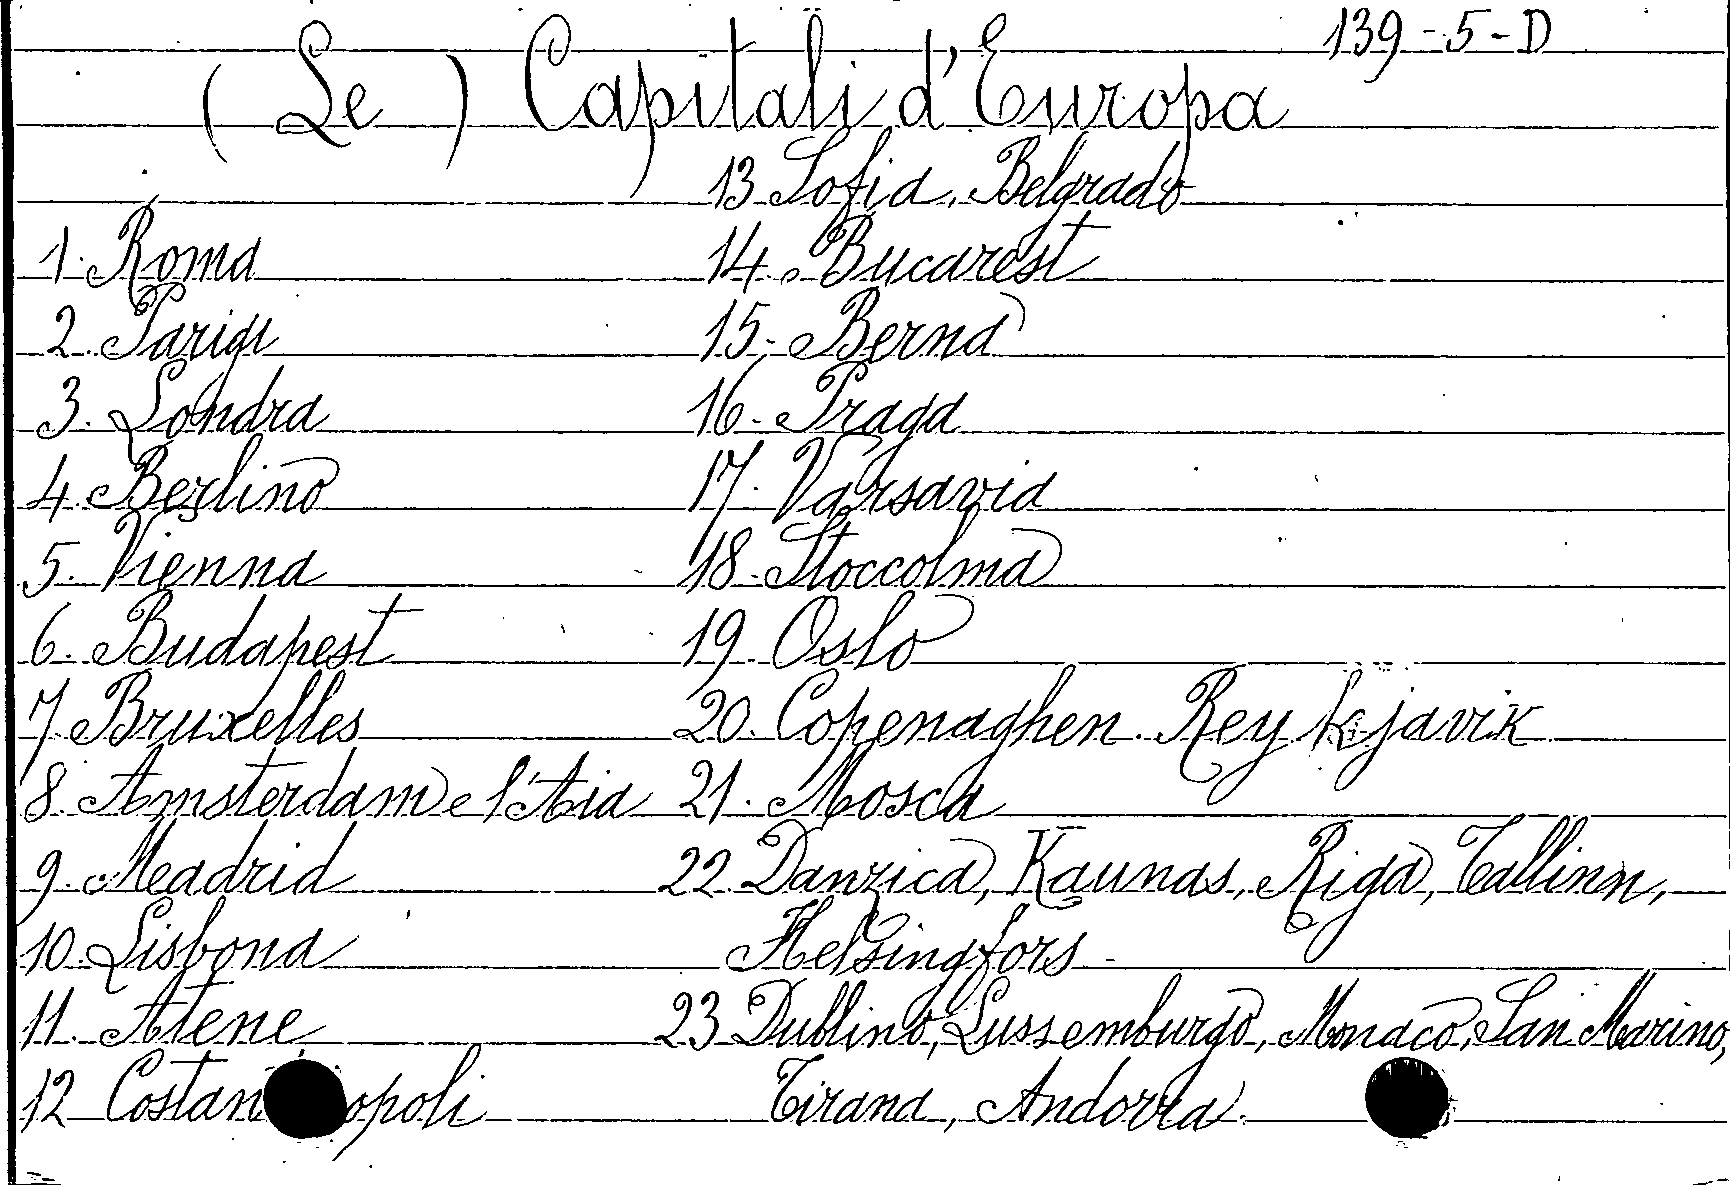 139-5-D
(Le) Capitali d'Europa
1. Roma
2. Parigi
3. Londra
4. Berlino
5. Vienna
6. Budapest
7 Bruxelles
8. Amsterdam e l'Aia
9. Madrid
10. Lisbona
11. Atene
12 Costan opoli
13 Sofia, Belgrado
14. Bucarest
15. Berna
16. Praga
17. Varsavia
18. Stoccolma
19. Oslo
20. Copenaghen. Reykjavik
21. Mosca
22. Danzica, Kaunas, Riga, Tallinn,
Helsingfors
23 Dublino, Lussemburgo, Monaco, San Marino,
Tirana, Andorra.